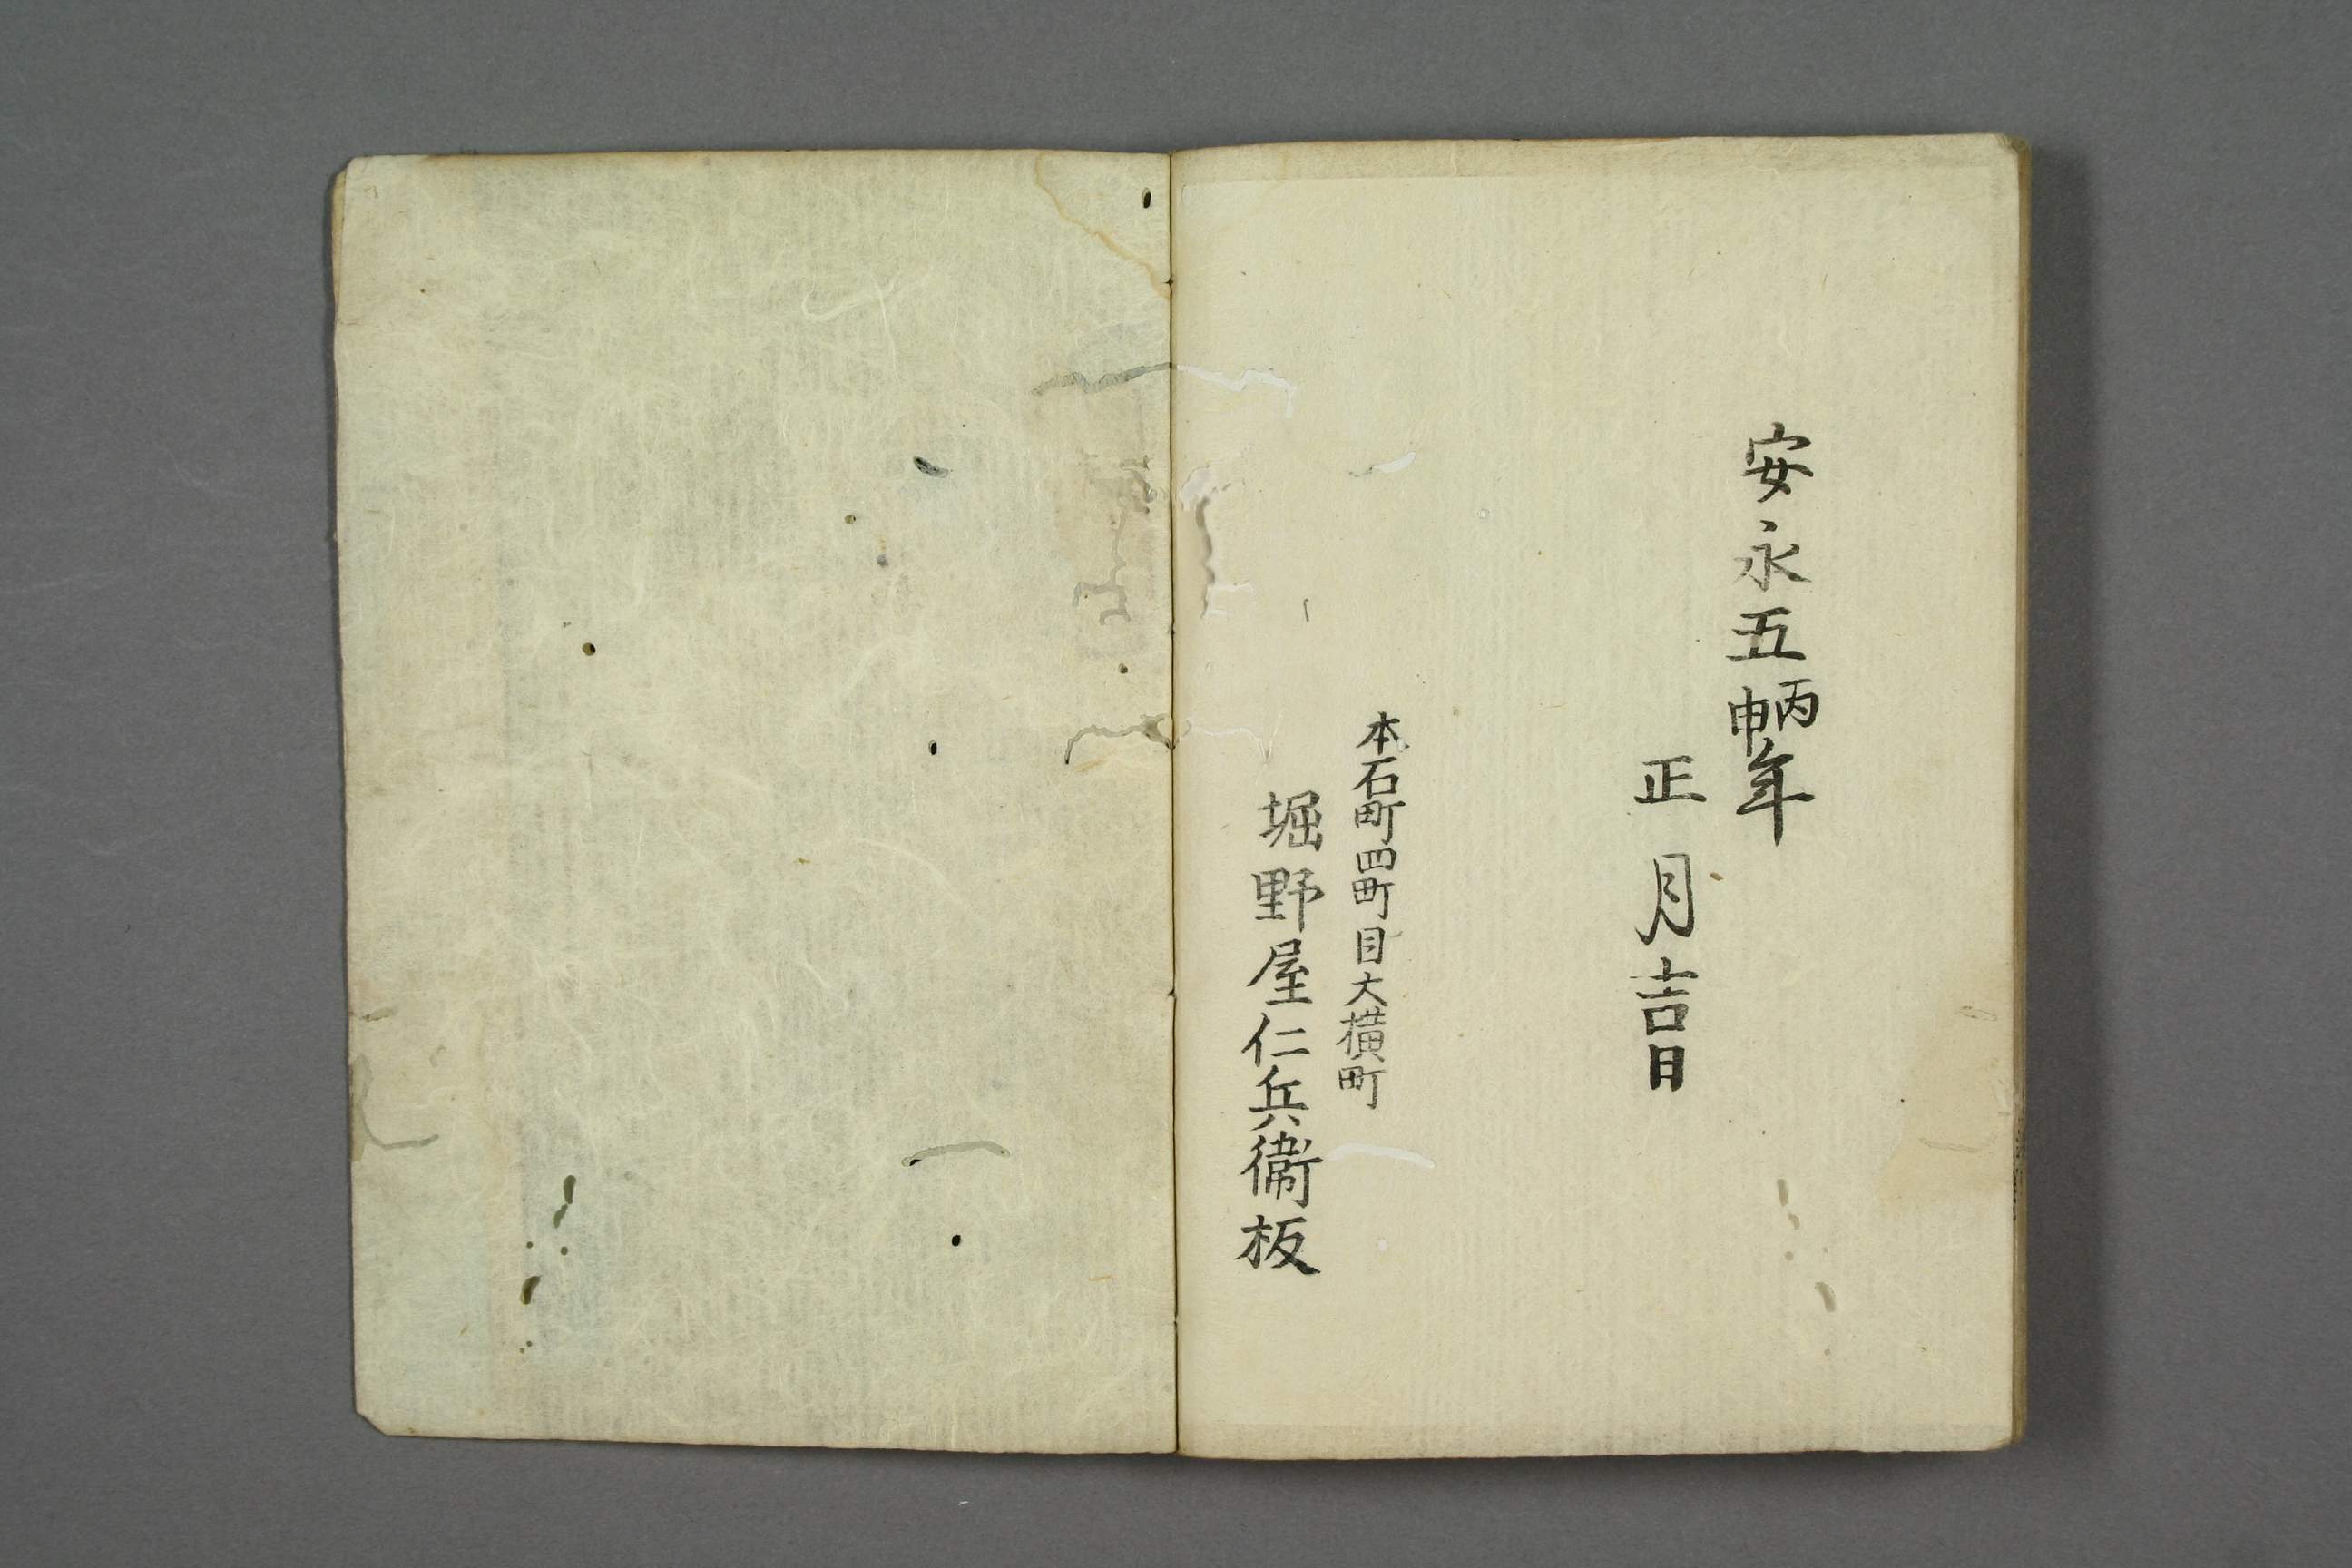 安永五丙申年
正月吉日
本石町四町目大横町
堀野屋仁兵衞板